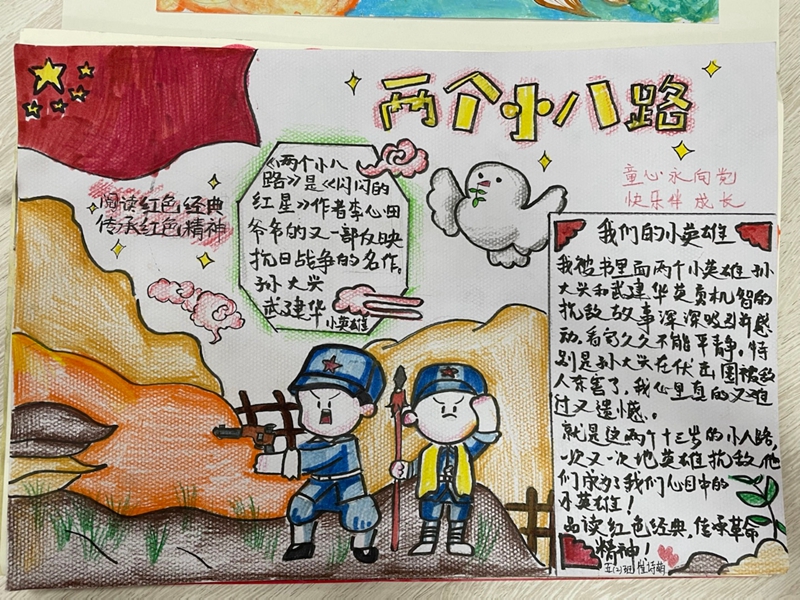 两个小八路
童心永向党
快乐伴成长
阅读红色经典
传承红色精神
《两个小八
路》是《闪闪的
红星》作者李心田
爷爷的又一部反映
抗日战争的名作。
孙大兴
武建华 小英雄
我们的小英雄
我被书里面两个小英雄孙
大兴和武建华英勇机智的
抗敌故事深深吸引并感
动。看完久久不能平静。特
别是孙大兴在伏击圈被敌
人杀害了,我心里真的又难
过又遗憾。
就是这两个十三岁的小八路,
一次又一次地英雄抗敌,他
们成为了我们心目中的
小英雄!
品读红色经典,传承革命
精神!
五(2)班